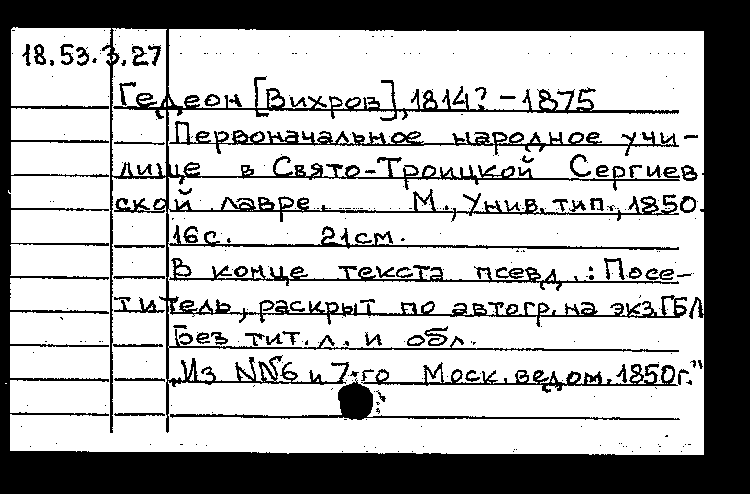 18.53.3.27
Гедеон [Вихров], 1814? - 1875
Первоначальное народное учи-
лище в Свято-Троицкой Сергиев-
ской лавре. М., Унив. тип., 1850.
16 с. 21 см.
В конце текста псевд.: Посе-
титель, раскрыт по автогр. на экз. ГБЛ
Без тит. л. и обл.
„Из NN6 и 7-го Моск. ведом. 1850 г."